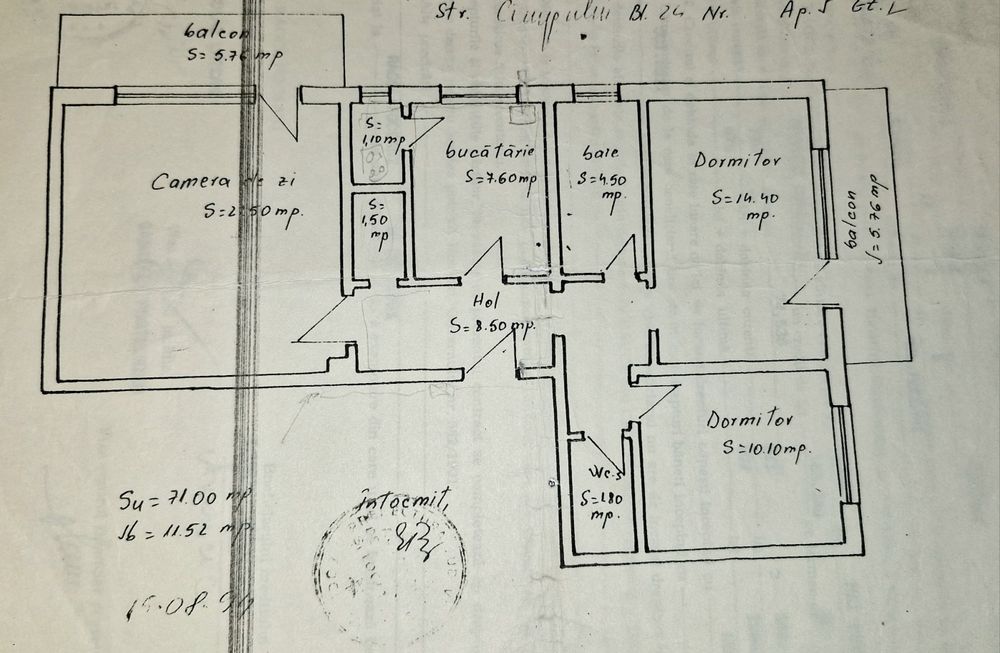 Str. Cîmpului Bl. 24 Nr. Ap. 5 Et. 1
balcon
S= 5.76 mp
S=
1,10mp
bucătărie
S=7.60mp
baie
S=4.50
mp.
Dormitor
S=14.40
mp.
balcon
S=5.76 mp
Camera de zi
S=21.50 mp.
S=
1,50
mp
Hol
S=8.50mp.
Dormitor
S=10.10mp.
Wc.s
S=1.80
mp.
Su = 71.00 mp
Sb = 11.52 mp
întocmit,
15.08.90